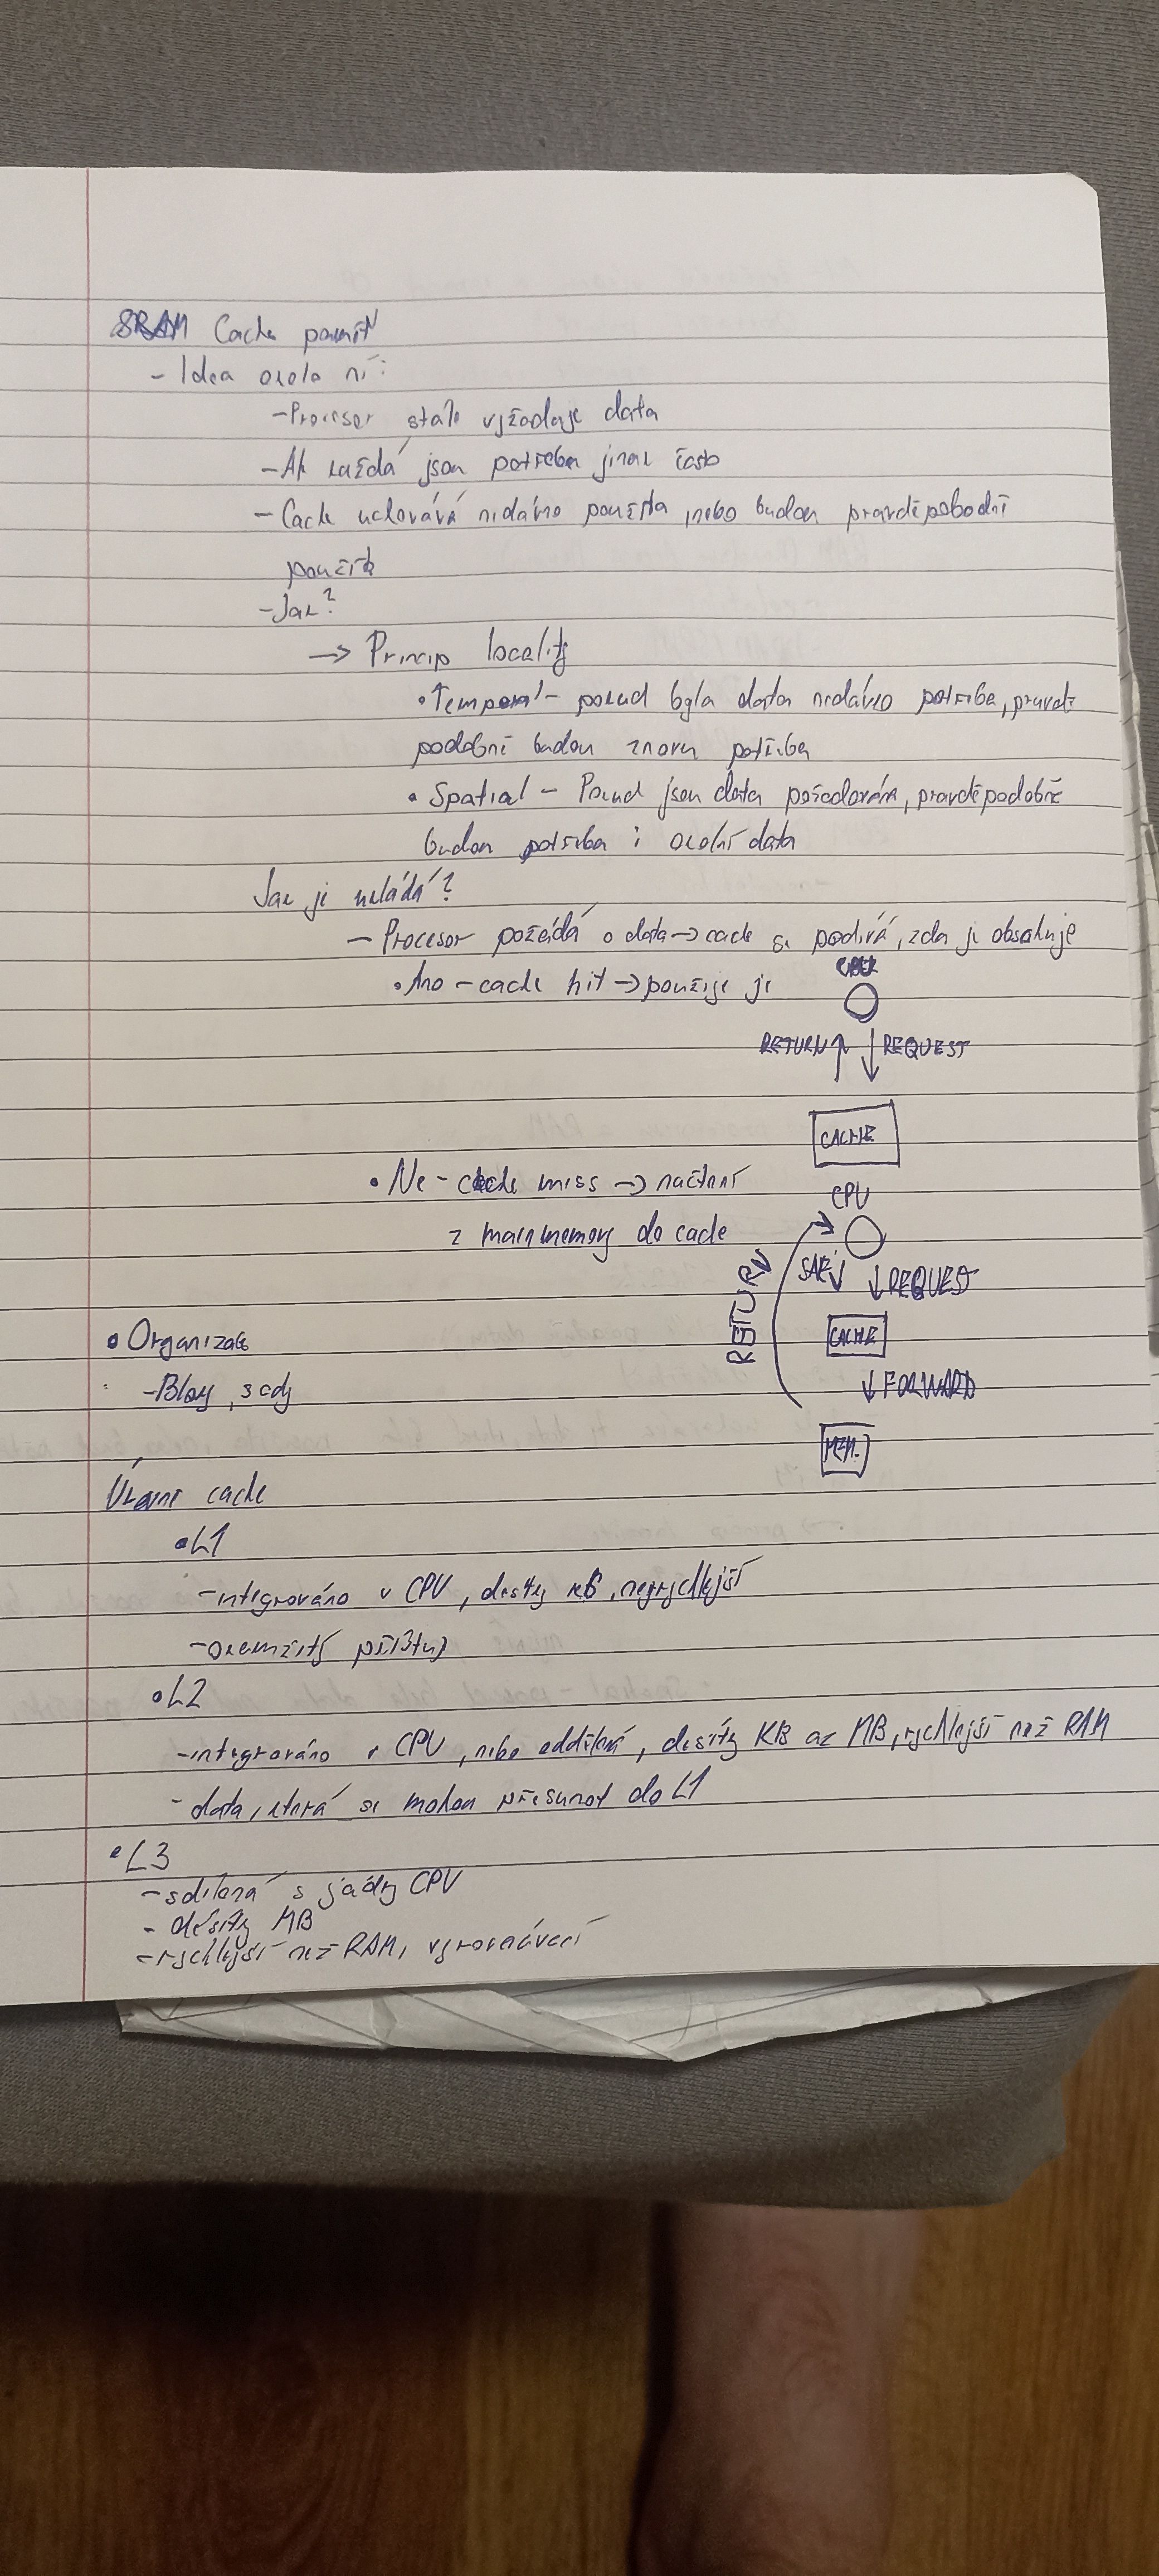 SRAM Cache paměť
- Idea okolo ní:
- Procesor stále vyžaduje data
- Ale každá jsou potřeba jinak často
- Cache uchovává nedávno použita, nebo budou pravděpobodně
použita
- Jak?
→ Princip locality
• Temporal - pokud byla data nedávno potřeba, pravdě
podobně budou znovu potřeba
• Spatial - Pokud jsou data požadována, pravděpodobně
budou potřeba i okolní data
Jak je ukládá?
- Procesor požádá o data → cache se podívá, zda je obsahuje
• Ano - cache hit → použije je
CPU
RETURN ↑ ↓ REQUEST
CACHE
• Ne - cache miss → načtení
z main memory do cache
CPU
RETURN
SAVE ↓ ↓ REQUEST
CACHE
↓ FORWARD
MEM.
• Organizace
- Bloky, sady
Úrovně cache
• L1
- integrováno v CPU, desítky KB, nejrychlejší
- okamžitý přístup
• L2
- integrováno v CPU, nebo oddělená, desítky KB až MB, rychlejší než RAM
- data, která se mohou přesunout do L1
• L3
- sdílená s jádry CPU
- desítky MB
- rychlejší než RAM, vyrovnávací